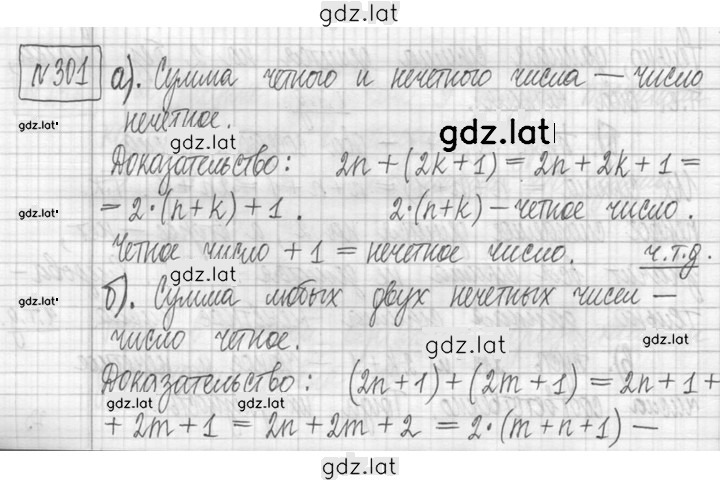 gdz.lat
№301 а). Сумма четного и нечетного числа — число
gdz.lat
нечетное.
gdz.lat
gdz.lat
Доказательство: 2n + (2k + 1) = 2n + 2k + 1 =
gdz.lat
= 2·(n+k) + 1. 2·(n+k) — четное число.
Четное число + 1 = нечетное число. ч.т.д.
gdz.lat
gdz.lat
б). Сумма любых двух нечетных чисел —
число четное.
gdz.lat
Доказательство: (2n + 1) + (2m + 1) = 2n + 1 +
gdz.lat
gdz.lat
+ 2m + 1 = 2n + 2m + 2 = 2·(m+n+1) —
gdz.lat